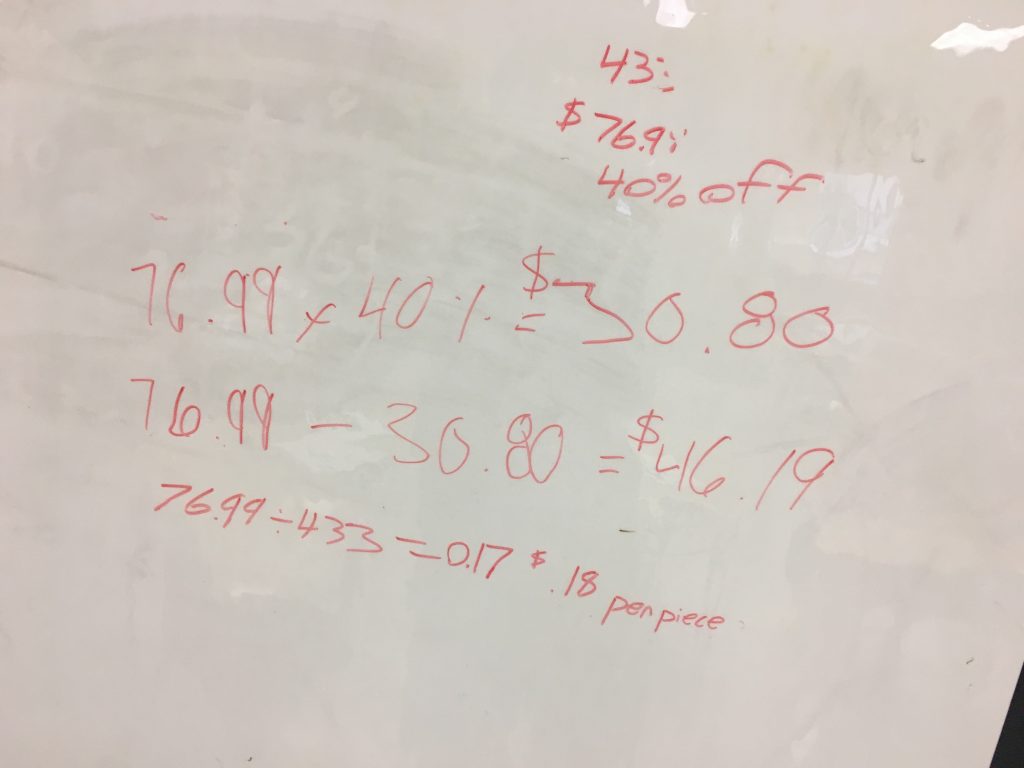 $76.9
40% off
76.99 x 40% = $30.80
76.99 - 30.80 = $46.19
76.99 ÷ 433 = 0.17 $.18 per piece